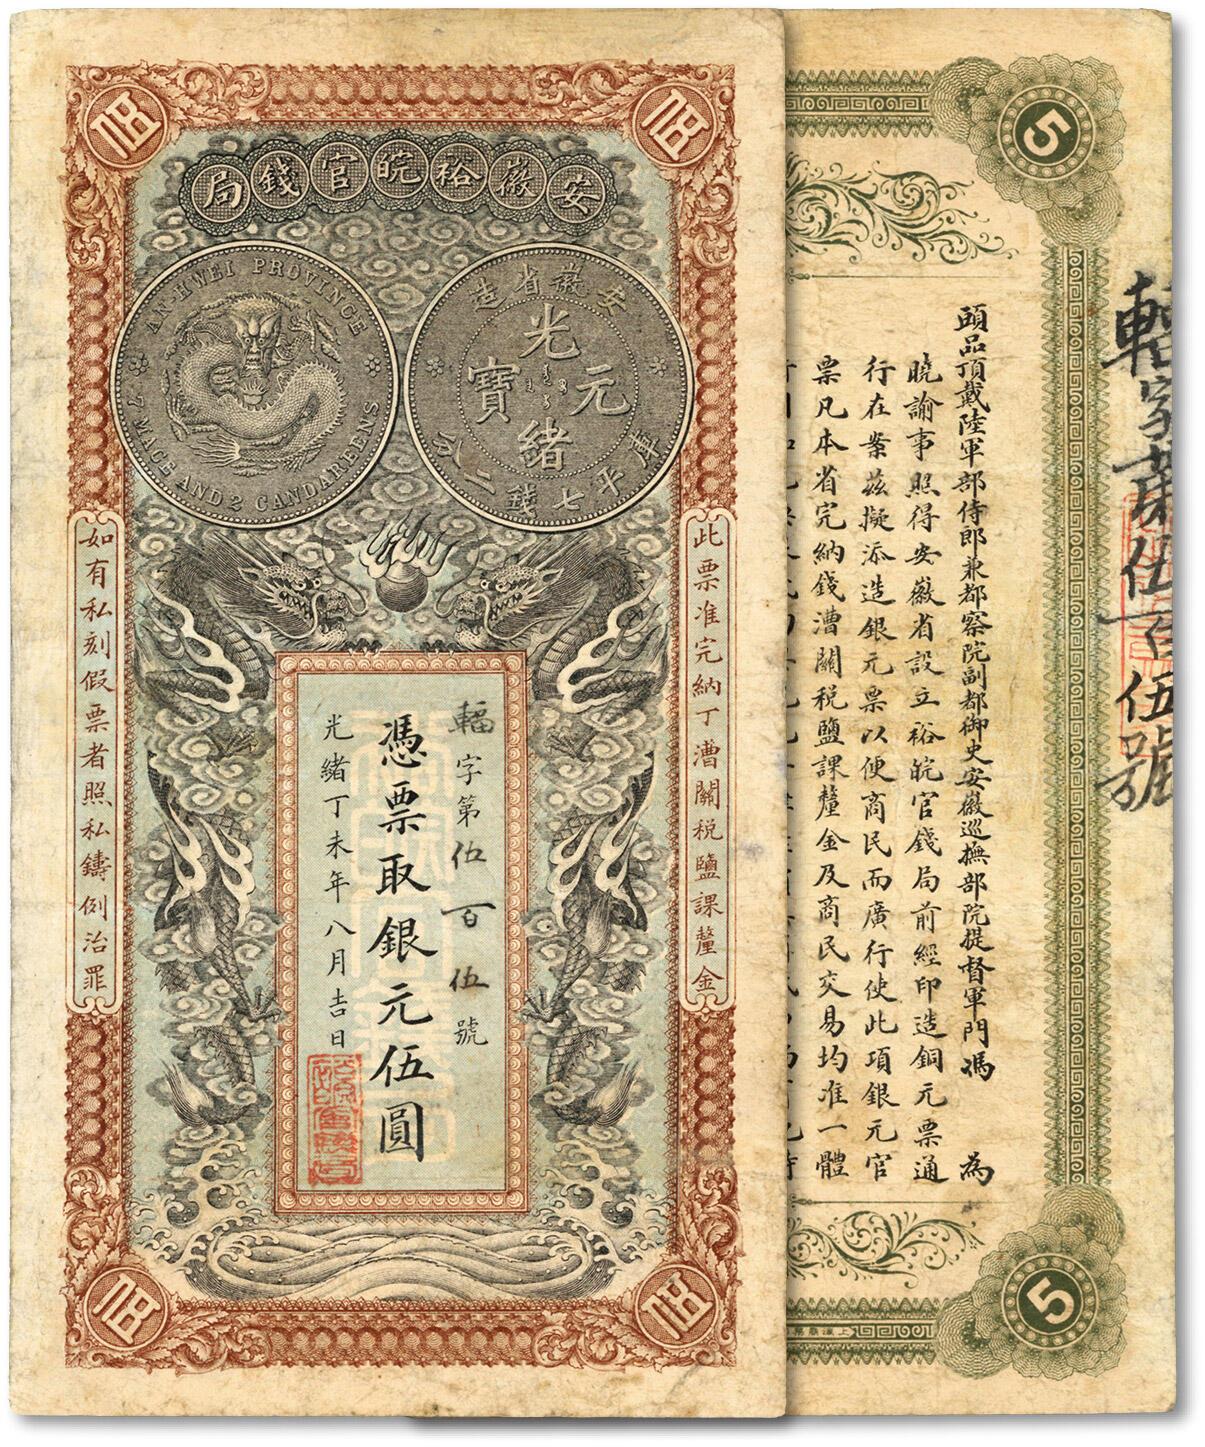 伍 伍
安徽裕皖官錢局
AN-HWEI PROVINCE
7 MACE AND 2 CANDAREENS
安徽省造
光緒元寶
庫平七錢二分
此票准完納丁漕關稅鹽課釐金
如有私刻假票者照私鑄例治罪
輻字第伍百伍號
憑票取銀元伍圓
光緒丁未年八月吉日
伍 伍
5
頭品頂戴陸軍部侍郎兼都察院副都御史安徽巡撫部院提督軍門馮 為
曉諭事照得安徽省設立裕皖官錢局前經印造銅元票通
行在案茲擬添造銀元票以便商民而廣行使此項銀元官
票凡本省完納錢漕關稅鹽課釐金及商民交易均准一體
字第伍百伍號
5